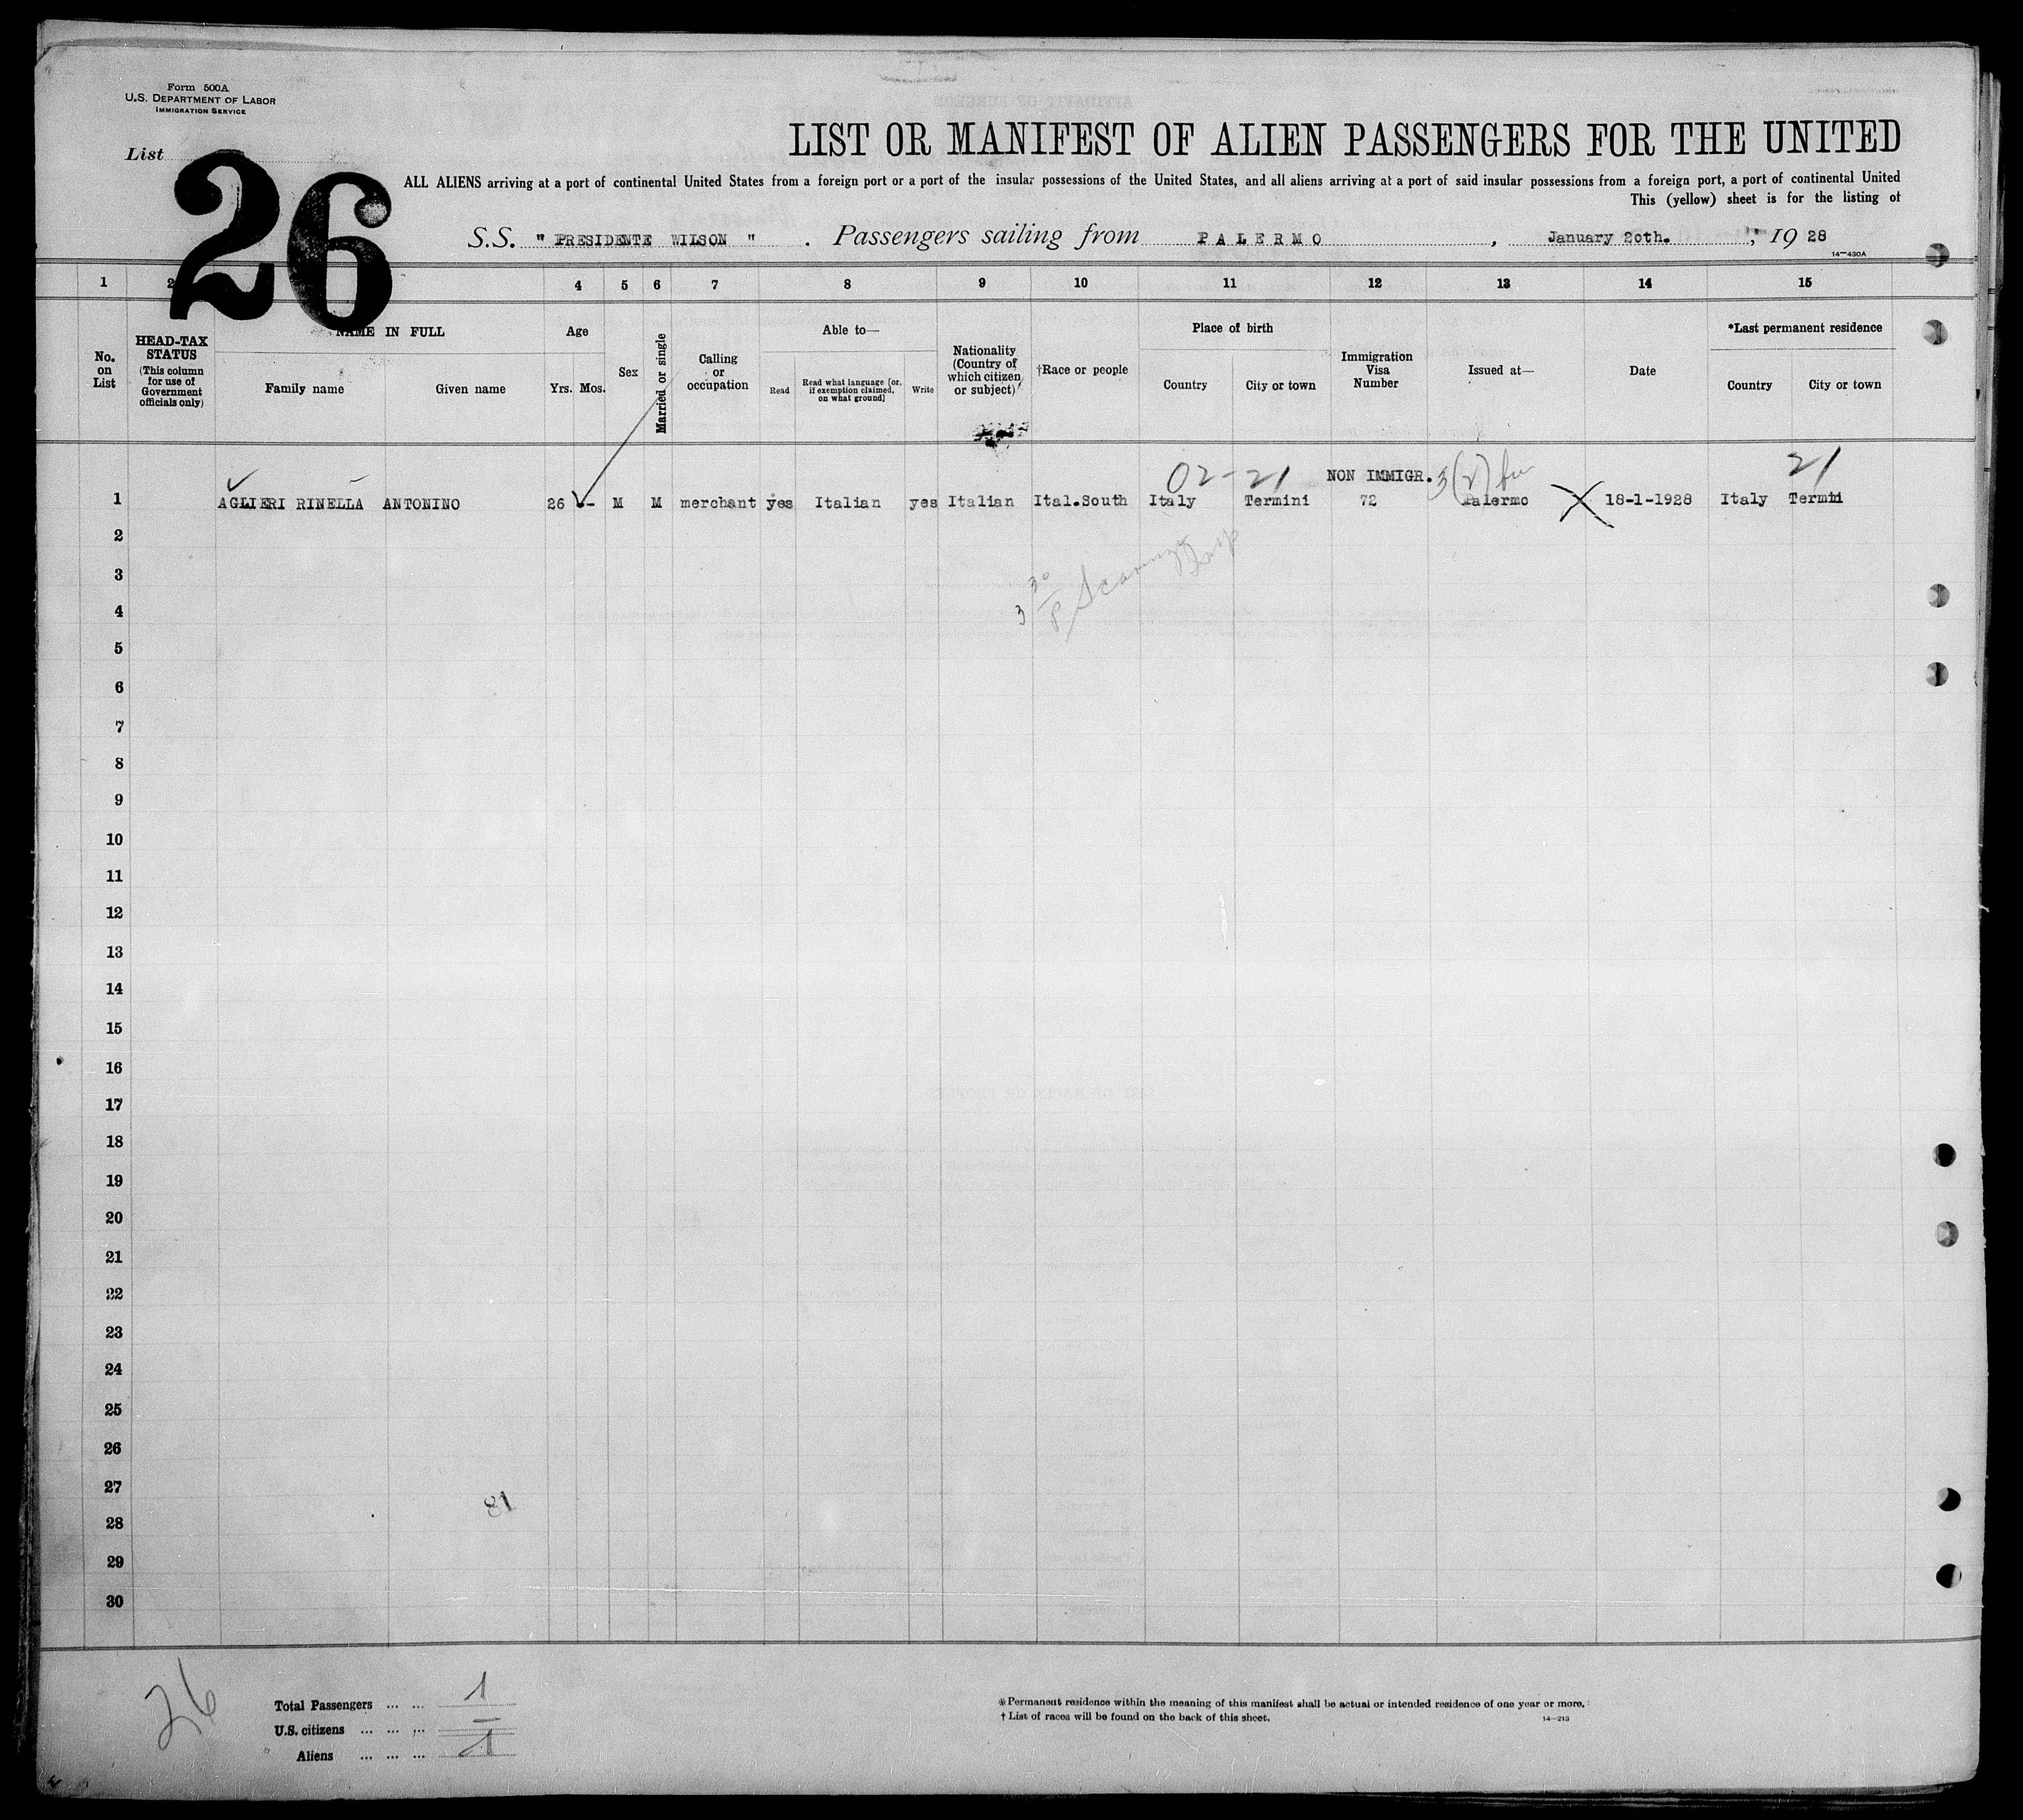 Form 500A
U.S. DEPARTMENT OF LABOR
IMMIGRATION SERVICE
List
26
LIST OR MANIFEST OF ALIEN PASSENGERS FOR THE UNITED
ALL ALIENS arriving at a port of continental United States from a foreign port or a port of the insular possessions of the United States, and all aliens arriving at a port of said insular possessions from a foreign port, a port of continental United
This (yellow) sheet is for the listing of
S.S. " PRESIDENTE WILSON " . Passengers sailing from PALERMO , January 20th. , 19 28
14—430A
1 2 4 5 6 7 8 9 10 11 12 13 14 15
No. on List
HEAD-TAX STATUS
(This column for use of Government officials only)
NAME IN FULL
Family name Given name
Age
Yrs. Mos.
Sex
Married or single
Calling or occupation
Able to—
Read
Read what language [or, if exemption claimed, on what ground]
Write
Nationality (Country of which citizen or subject)
†Race or people
Place of birth
Country City or town
Immigration Visa Number
Issued at—
Date
*Last permanent residence
Country City or town
02-21 NON IMMIGR. 3(2) 21
1 AGLIERI RINELLA ANTONINO 26 -- M M merchant yes Italian yes Italian Ital.South Italy Termini 72 Palermo X 18-1-1928 Italy Termini
2
3
3 30/P
4
5
6
7
8
9
10
11
12
13
14
15
16
17
18
19
20
21
22
23
24
25
26
27
81
28
29
30
26
Total Passengers ... ... 1
U.S. citizens ... ... ... –
Aliens ... ... ... 1
*Permanent residence within the meaning of this manifest shall be actual or intended residence of one year or more.
† List of races will be found on the back of this sheet.
14—213